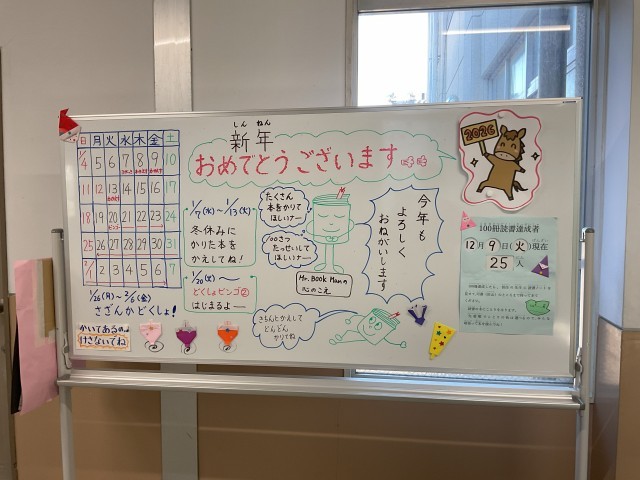 日 月 火 水 木 金 土
1/4 5 6 7 8 9 10
11 12 13 14 15 16 17
18 19 20 21 22 23 24
25 26 27 28 29 30 31
2/1 2 3 4 5 6 7
1/26(月)～2/6(金)
さざんかどくしょ!
かいてあるの
けさないでね
しん ねん
新年
おめでとうございます
1/7(水)～1/13(火)
冬休みに
かりた本を
かえしてね!
1/20(火)～
どくしょビンゴ②
はじまるよー
たくさん
本をかりて
ほしいナー
100さつ
たっせいして
ほしいナー
Mr. Book Manの
心のこえ
きちんとかえして
どんどん
かりてね
今年も
よろしく
おねがいします
2026
100冊読書達成者
12月9日(火)現在
25人